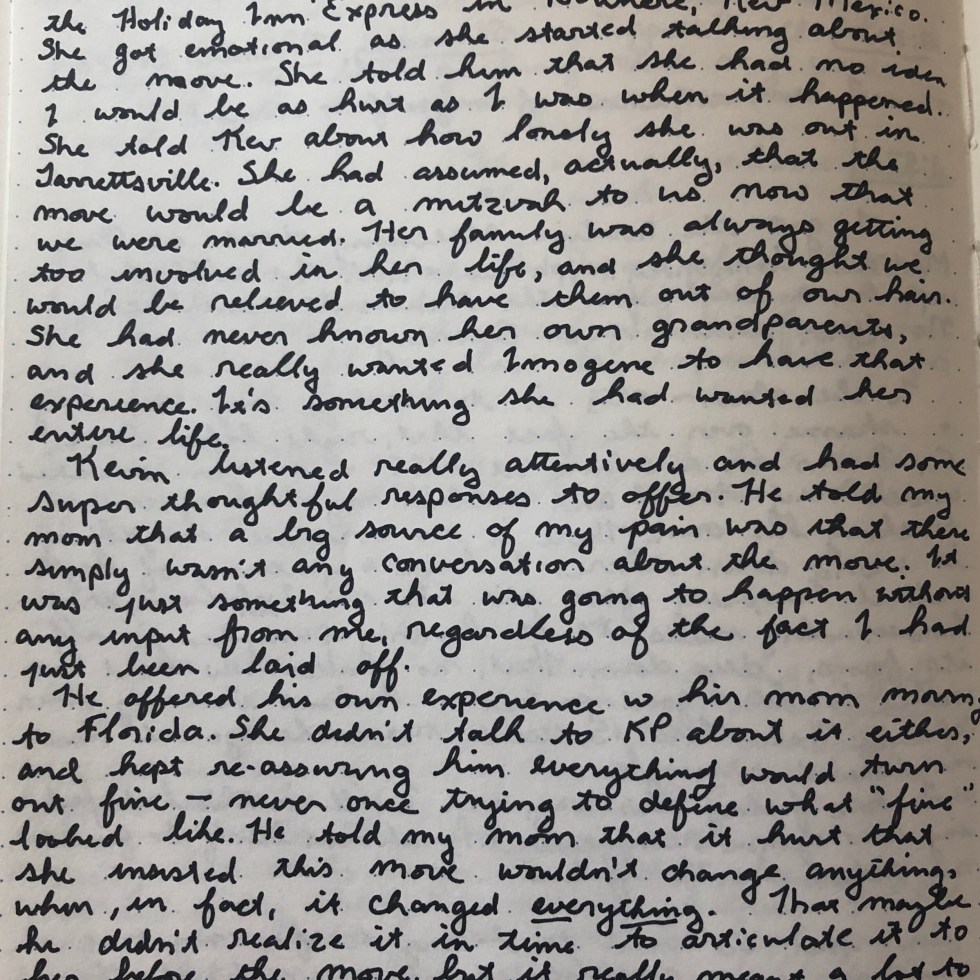 the Holiday Inn Express in Nowhere, New Mexico.
She got emotional as she started talking about
the move. She told him that she had no idea
I would be as hurt as I was when it happened.
She told Kev about how lonely she was out in
Jarrettsville. She had assumed, actually, that the
move would be a mitzvah to us now that
we were married. Her family was always getting
too involved in her life, and she thought we
would be relieved to have them out of our hair.
She had never known her own grandparents,
and she really wanted Imogene to have that
experience. It's something she had wanted her
entire life.
Kevin listened really attentively and had some
super thoughtful responses to offer. He told my
mom that a big source of my pain was that there
simply wasn't any conversation about the move. It
was just something that was going to happen without
any input from me, regardless of the fact I had
just been laid off.
He offered his own experience w his mom moving
to Florida. She didn't talk to KP about it either,
and kept re-assuring him everything would turn
out fine — never once trying to define what "fine"
looked like. He told my mom that it hurt that
she insisted this move wouldn't change anything,
when, in fact, it changed everything. That maybe
he didn't realize it in time to articulate it to
her before the move, but it really meant a lot to